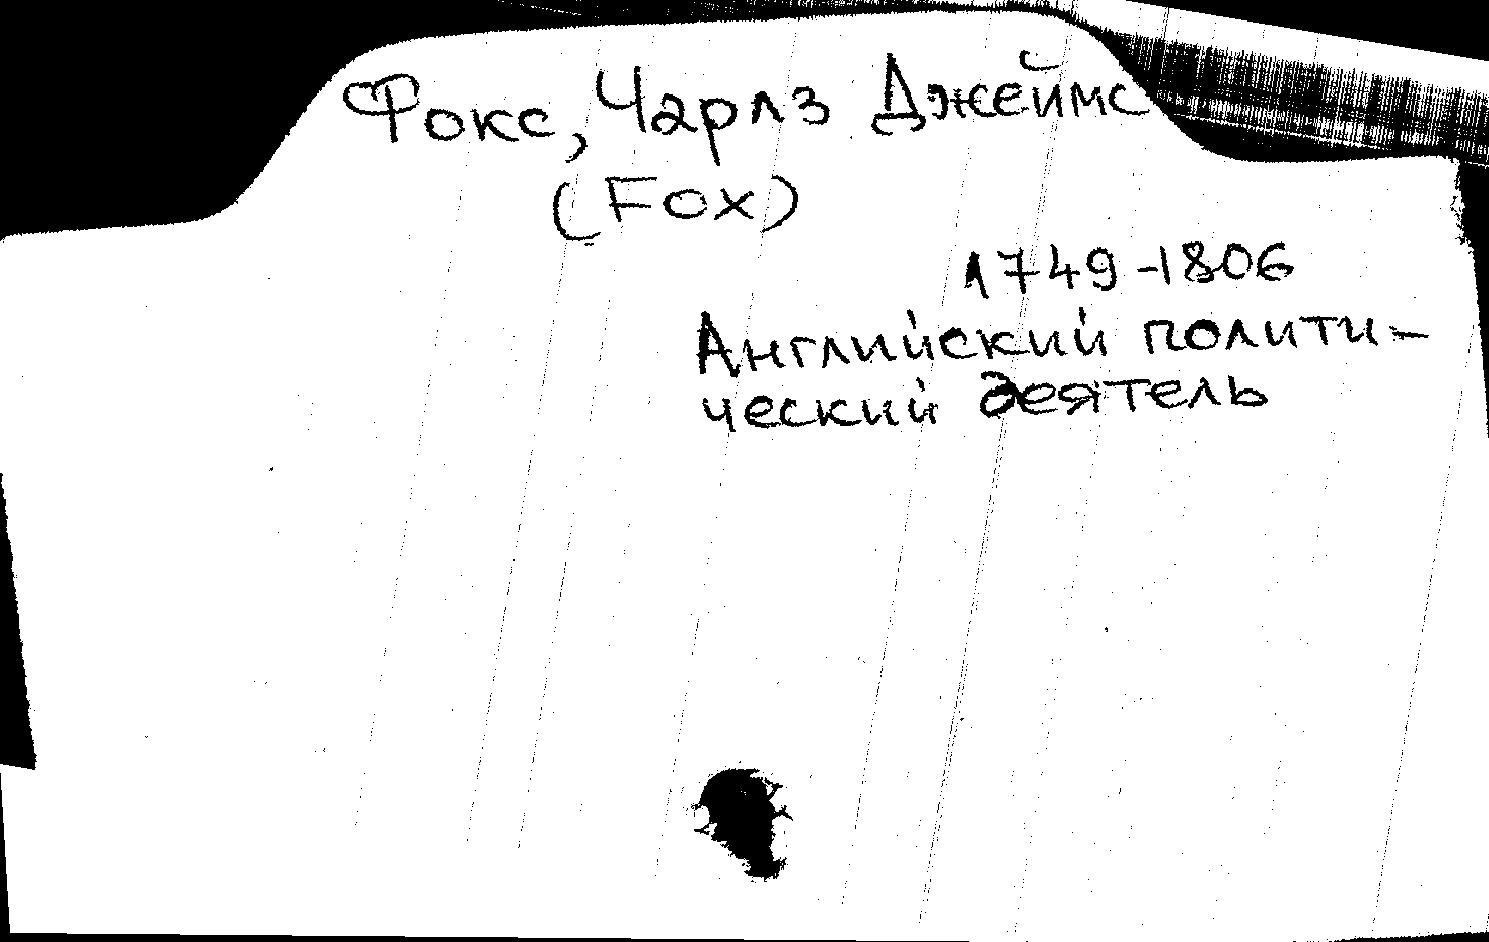 Фокс, Чарлз Джеймс
(Fox)
1749-1806
Английский полити-
ческий деятель